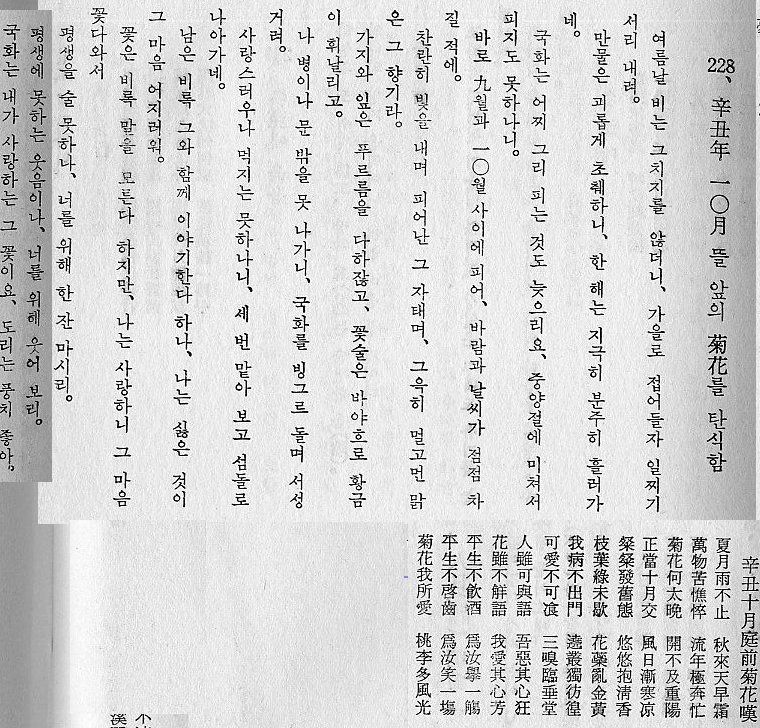 228、辛丑年 一〇月 뜰 앞의 菊花를 탄식함
여름날 비는 그치지를 않더니、가을로 접어들자 일찌기
서리 내려。
만물은 괴롭게 초췌하니、한 해는 지극히 분주히 흘러가
네。
국화는 어찌 그리 피는 것도 늦으리요、중양절에 미쳐서
피지도 못하나니。
바로 九월과 一〇월 사이에 피어、바람과 날씨가 점점 차
질 적에。
찬란히 빛을 내며 피어난 그 자태며、그윽히 멀고먼 맑
은 그 향기라。
가지와 잎은 푸르름을 다하잖고、꽃술은 바야흐로 황금
이 휘날리고。
나 병이나 문 밖을 못 나가니、국화를 빙그르 돌며 서성
거려。
사랑스러우나 먹지는 못하나니、세 번 맡아 보고 섬돌로
나아가네。
남은 비록 그와 함께 이야기한다 하나、나는 싫은 것이
그 마음 어지러워。
꽃은 비록 말을 모른다 하지만、나는 사랑하니 그 마음
꽃다와서
평생을 술 못하나、너를 위해 한 잔 마시리。
평생에 못하는 웃음이나、너를 위해 웃어 보리。
국화는 내가 사랑하는 그 꽃이요、도리는 풍치 좋아。
辛丑十月庭前菊花嘆
夏月雨不止 秋來天早霜
萬物苦憔悴 流年極奔忙
菊花何太晩 開不及重陽
正當十月交 風日漸寒凉
粲粲發舊態 悠悠抱清香
枝葉綠未歇 花蘂亂金黃
我病不出門 遶叢獨彷徨
可愛不可飡 三嗅臨垂堂
人雖可與語 吾惡其心狂
花雖不解語 我愛其心芳
平生不飮酒 爲汝擧一觴
平生不啓齒 爲汝笑一場
菊花我所愛 桃李多風光